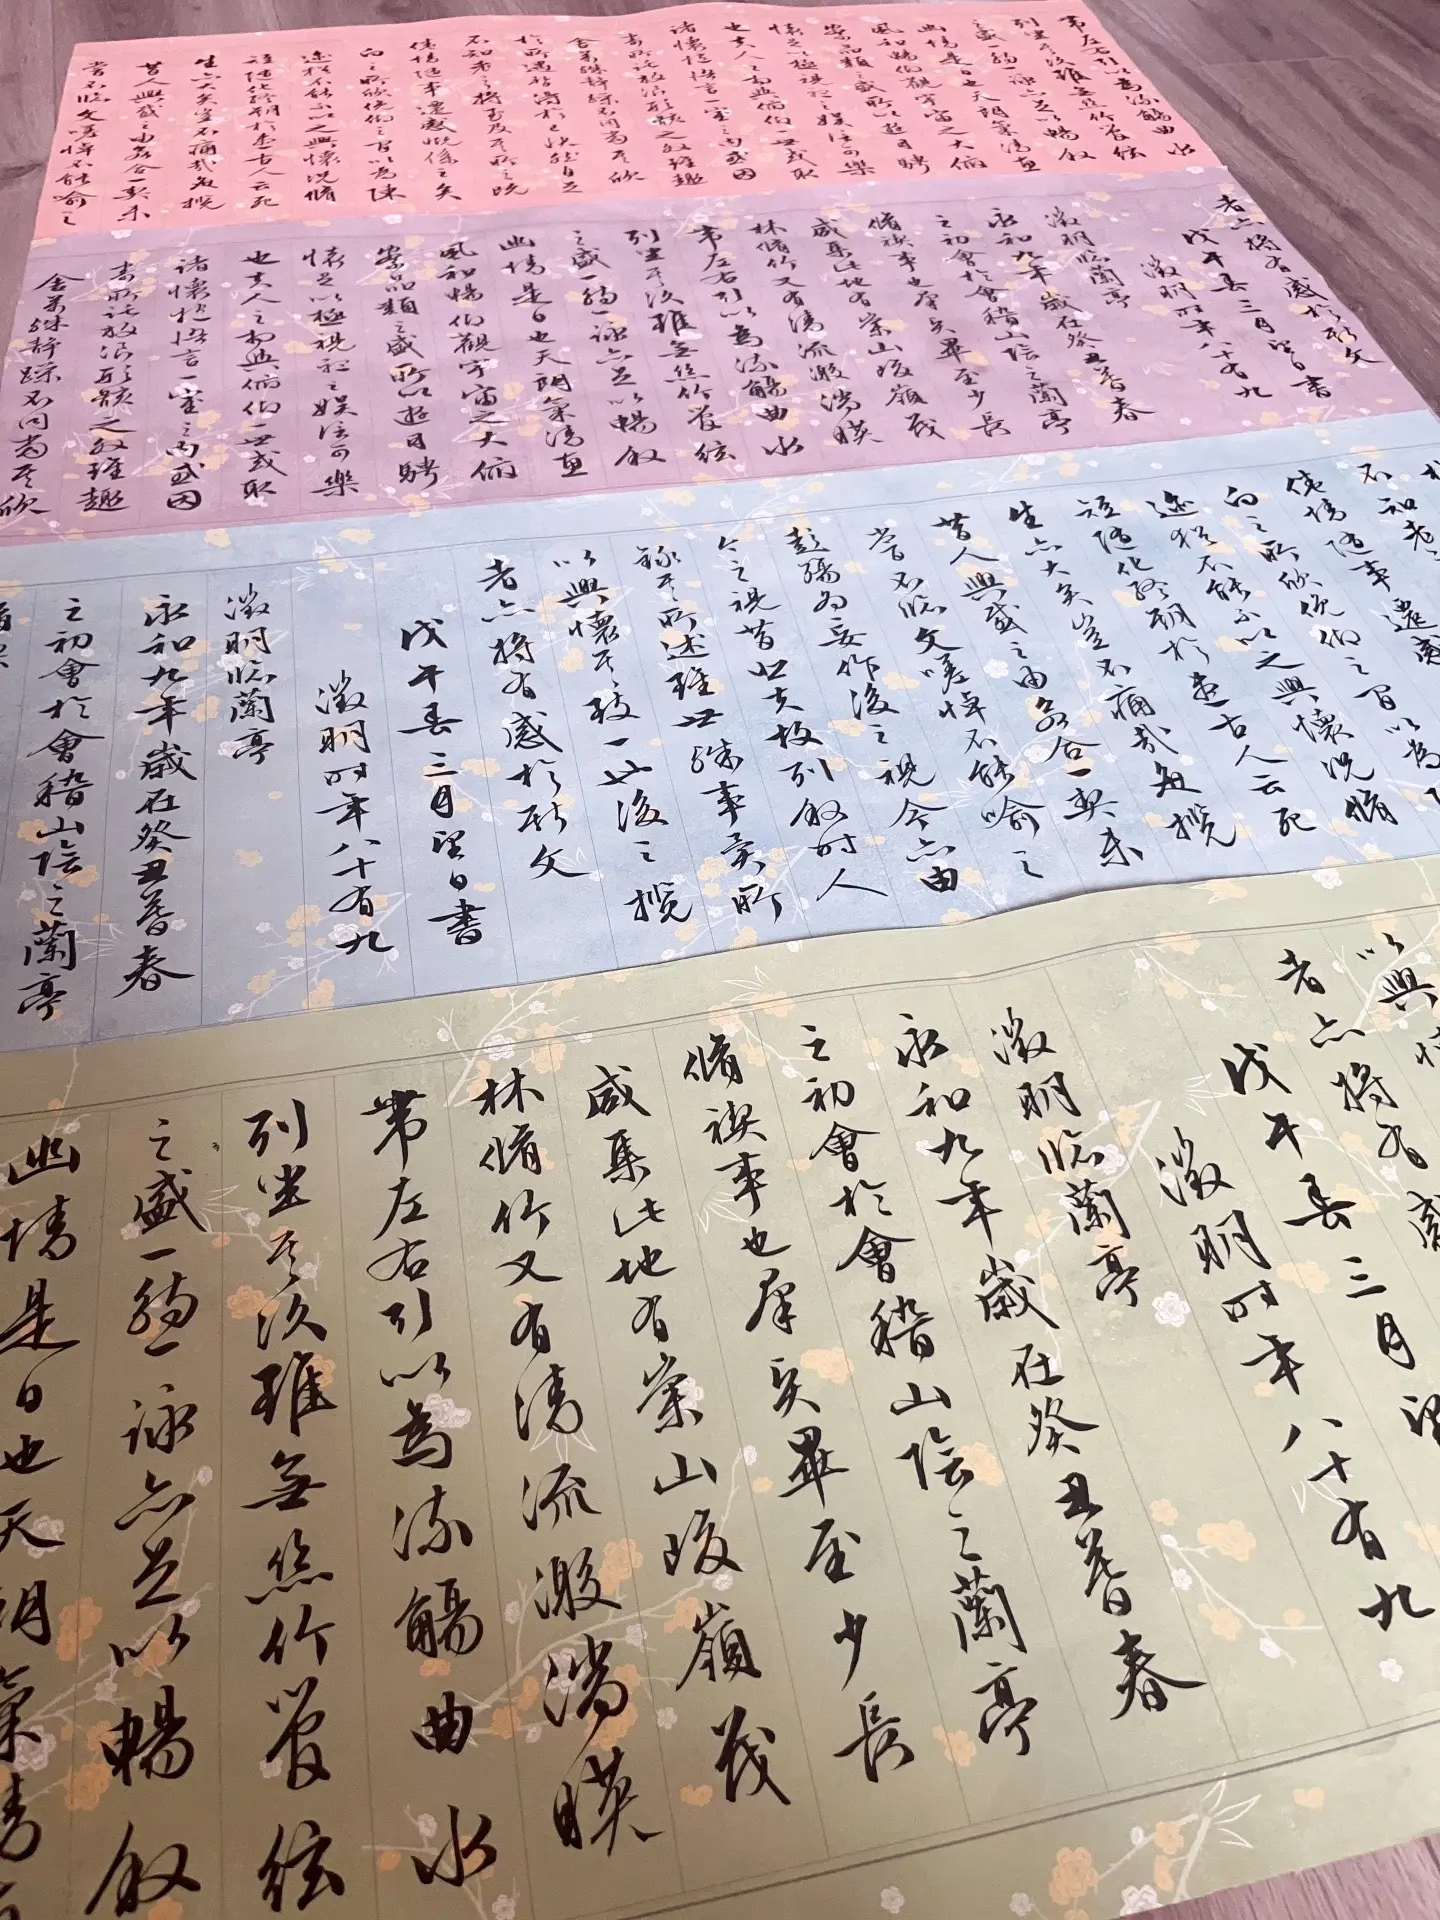 帶左右引以為流觴曲水
列坐其次雖無絲竹管絃
之盛一觴一詠亦足以暢敘
幽情是日也天朗氣清惠
風和暢仰觀宇宙之大俯
察品類之盛所以遊目騁
懷足以極視聽之娛信可樂
也夫人之相與俯仰一世或取
諸懷抱悟言一室之內或因
寄所託放浪形骸之外雖趣
舍萬殊靜躁不同當其欣
於所遇暫得於己快然自足
不知老之將至及其所之既
倦情隨事遷感慨係之矣
向之所欣俛仰之間以為陳
迹猶不能不以之興懷況脩
短隨化終期於盡古人云死
生亦大矣豈不痛哉每攬
昔人興感之由若合一契未
嘗不臨文嗟悼不能喻之
者亦將有感於斯文
戊午春三月望日書
澂明時年八十有九
澂明臨蘭亭
永和九年歲在癸丑暮春
之初會於會稽山陰之蘭亭
脩禊事也群賢畢至少長
咸集此地有崇山峻嶺茂
林脩竹又有清流激湍暎
帶左右引以為流觴曲水
列坐其次雖無絲竹管絃
之盛一觴一詠亦足以暢敘
幽情是日也天朗氣清惠
風和暢仰觀宇宙之大俯
察品類之盛所以遊目騁
懷足以極視聽之娛信可樂
也夫人之相與俯仰一世或取
諸懷抱悟言一室之內或因
寄所託放浪形骸之外雖趣
舍萬殊靜躁不同當其欣
不知老
倦情隨事遷感
向之所欣俛仰之間以為
迹猶不能不以之興懷況脩
短隨化終期於盡古人云死
生亦大矣豈不痛哉每攬
昔人興感之由若合一契未
嘗不臨文嗟悼不能喻之
彭殤為妄作後之視今亦由
今之視昔悲夫故列敘時人
錄其所述雖世殊事異所
以興懷其致一也後之攬
者亦將有感於斯文
戊午春三月望日書
澂明時年八十有九
澂明臨蘭亭
永和九年歲在癸丑暮春
之初會於會稽山陰之蘭亭
以興懷
者亦將有感
戊午春三月望
澂明時年八十有九
澂明臨蘭亭
永和九年歲在癸丑暮春
之初會於會稽山陰之蘭亭
脩禊事也群賢畢至少長
咸集此地有崇山峻嶺茂
林脩竹又有清流激湍暎
帶左右引以為流觴曲水
列坐其次雖無絲竹管絃
之盛一觴一詠亦足以暢敘
幽情是日也天朗氣清